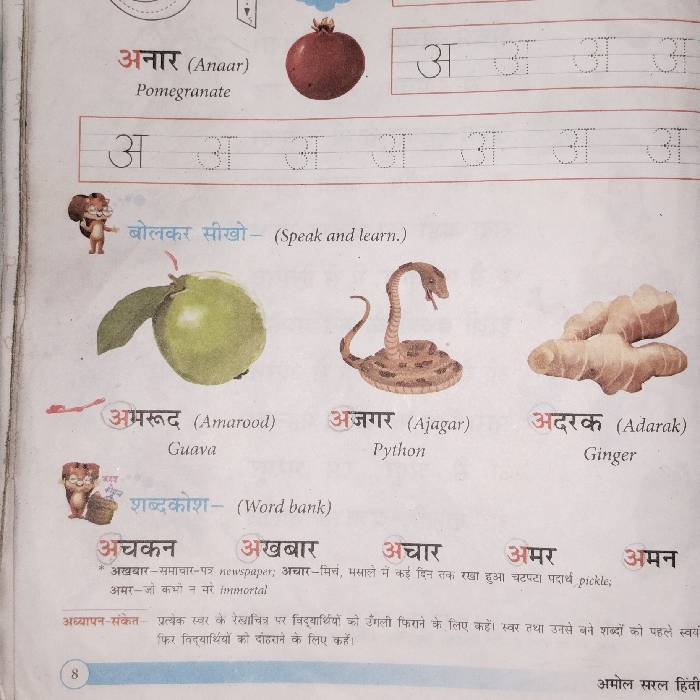 अनार (Anaar)
Pomegranate
अ अ अ अ
अ अ अ अ अ अ अ
बोलकर सीखो– (Speak and learn.)
अमरूद (Amarood) अजगर (Ajagar) अदरक (Adarak)
Guava Python Ginger
शब्दकोश– (Word bank)
अचकन अखबार अचार अमर अमन
* अखबार–समाचार-पत्र newspaper; अचार–मिर्च, मसाले में कई दिन तक रखा हुआ चटपटा पदार्थ pickle;
अमर–जो कभी न मरे immortal
अध्यापन-संकेत– प्रत्येक स्वर के रेखाचित्र पर विद्यार्थियों को उँगली फिराने के लिए कहें। स्वर तथा उनसे बने शब्दों को पहले स्वयं
फिर विद्यार्थियों को दोहराने के लिए कहें।
8
अमोल सरल हिंदी